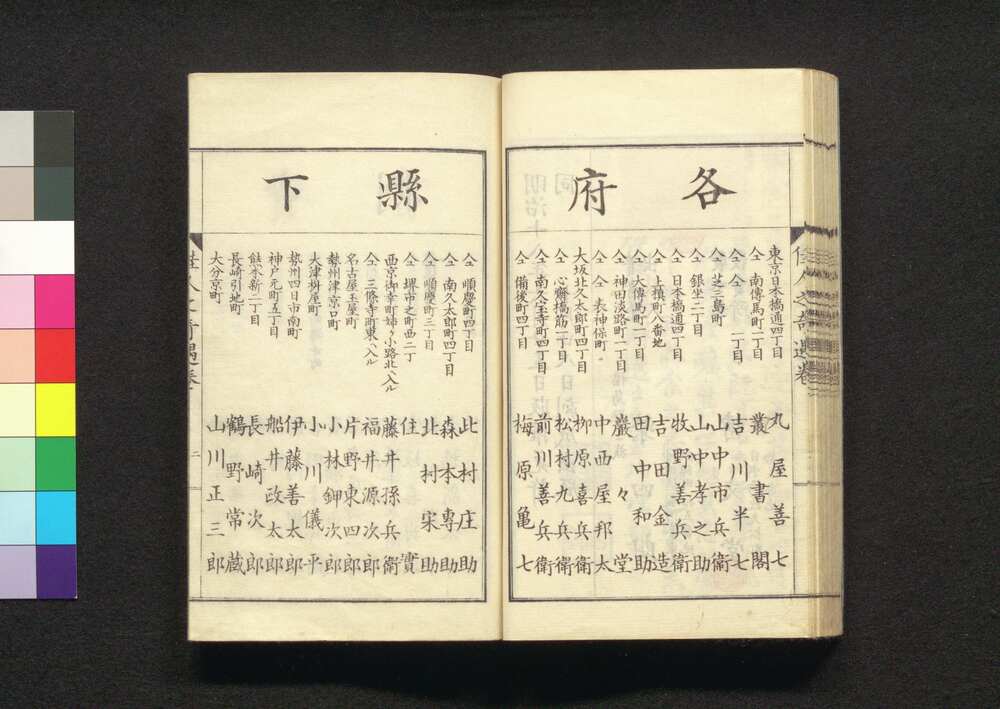 各府
東京日本橋通四丁目 丸屋善七
仝 南傳馬町一丁目 叢書閣
仝 仝 一丁目 吉川半七
仝 芝三島町 山中市兵衛
仝 銀坐二丁目 山中孝之助
仝 日本橋通四丁目 牧野善兵衛
仝 上槇町八番地 吉田金造
仝 大傳馬町一丁目 田中和助
仝 神田淡路町一丁目 巖々堂
仝 仝 表神保町 中西屋邦太
大坂北久太郎町四丁目 柳原喜兵衛
仝 心齋橋筋一丁目 松村九兵衛
仝 南久宝寺町四丁目 前川善兵衛
仝 備後町四丁目 梅原亀七
縣下
仝 順慶町四丁目 此村庄助
仝 南久太郎町四丁目 森本專助
仝 順慶町三丁目 北村宋助
仝 堺市之町西二丁 住實
西京御幸町姉小路北ヘ入ル 藤井孫兵衛
仝 三條寺町東ヘ入ル 福井源次郎
名古屋玉屋町 片野東四郎
勢州津京口町 小林鉚次郎
大津桝屋町 小川儀平
勢州四日市南町 伊藤善太郎
神戸元町五丁目 船井政太郎
熊本新二丁目 長崎次郎
長崎引地町 鶴野常蔵
大分京町 山川正三郎
佳人之奇遇卷
二